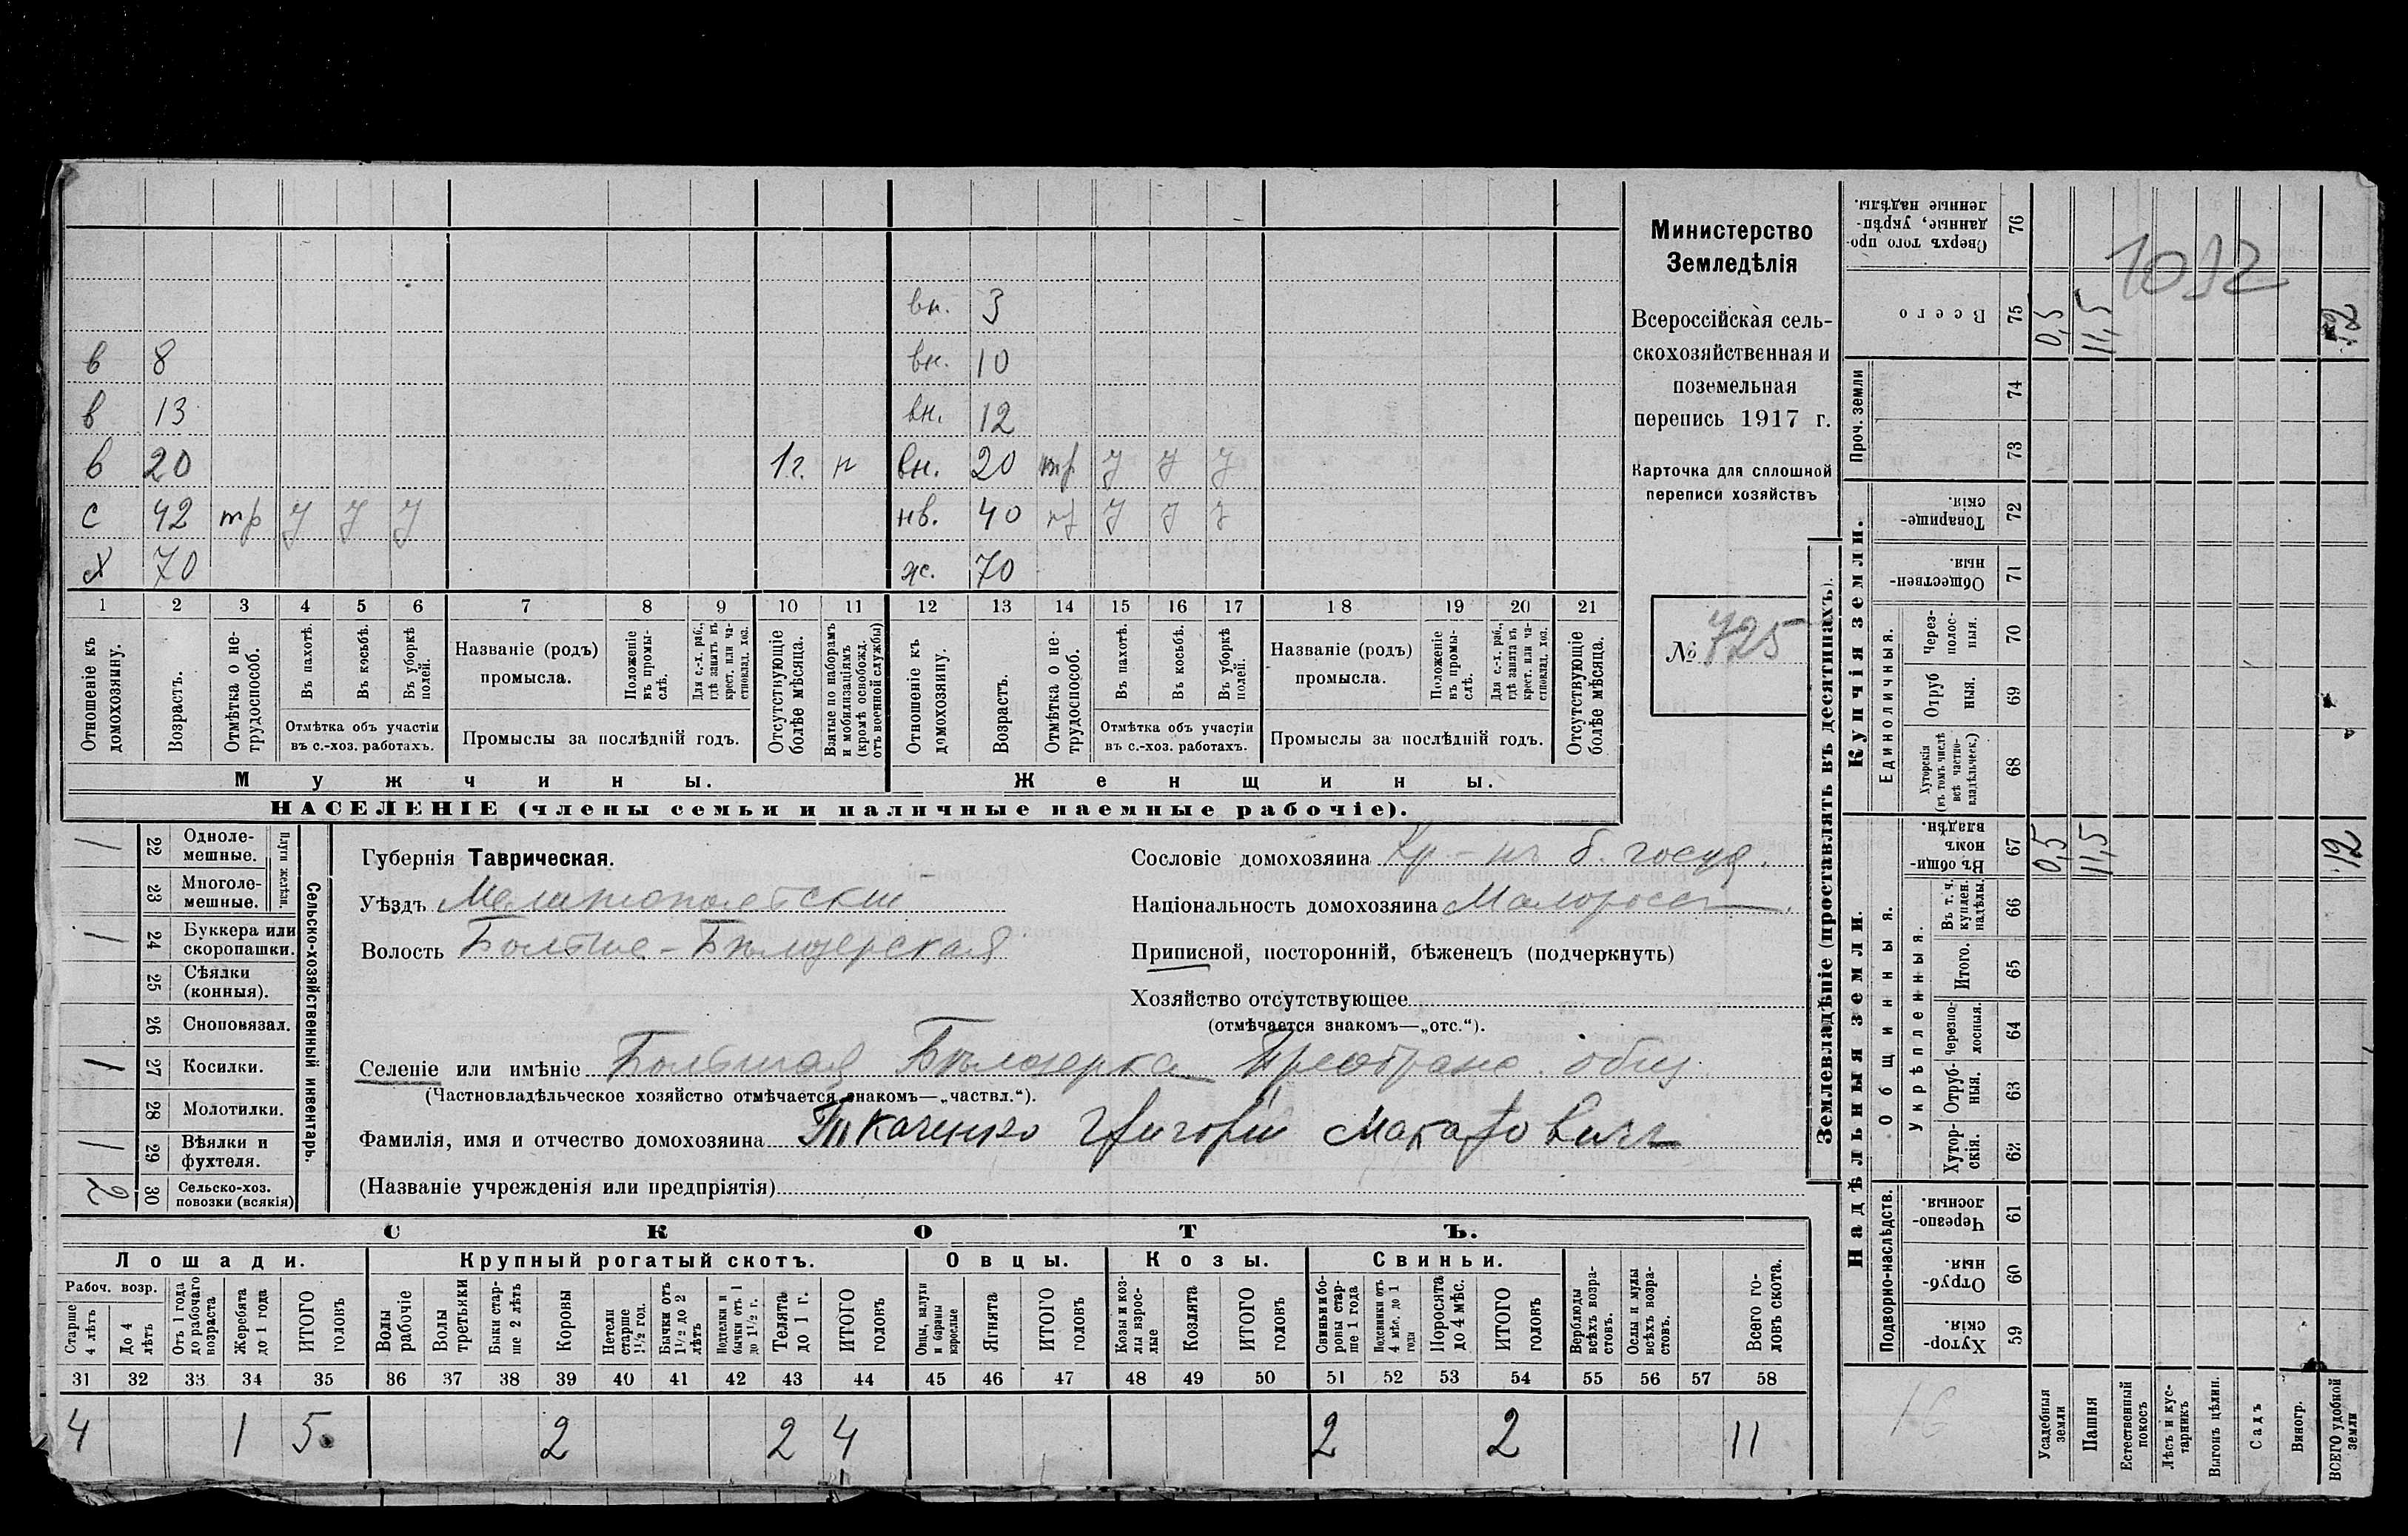 вн. 3
в 8 вн. 10
в 13 вн. 12
в 20 1 г. н вн. 20 тр у у у
с 42 тр у у у нв. 40 тр у у у
х 70 ж. 70
1 2 3 4 5 6 7 8 9 10 11 12 13 14 15 16 17 18 19 20 21
Отношеніе къ домохозяину.
Возрастъ.
Отмѣтка о не-трудоспособ.
Въ пахотѣ.
Въ косьбѣ.
Въ уборкѣ полей.
Отмѣтка объ участіи
въ с.-хоз. работахъ.
Названіе (родъ)
промысла.
Положеніе въ промы-слѣ.
Для с.-х. раб., гдѣ занятъ въ крест. или ча-стновлад. хоз.
Промыслы за послѣдній годъ.
Отсутствующіе болѣе мѣсяца.
Взятые по наборамъ и мобилизаціямъ (кромѣ освобожд. отъ военной службы)
Отношеніе къ домохозяину.
Возрастъ.
Отмѣтка о не-трудоспособ.
Въ пахотѣ.
Въ косьбѣ.
Въ уборкѣ полей.
Отмѣтка объ участіи
въ с.-хоз. работахъ.
Названіе (родъ)
промысла.
Положеніе въ промы-слѣ.
Для с.-х. раб., гдѣ занята въ крест. или ча-стновлад. хоз.
Промыслы за послѣдній годъ.
Отсутствующіе болѣе мѣсяца.
Мужчины. Женщины.
НАСЕЛЕНІЕ (члены семьи и наличные наемные рабочіе).
Министерство
Земледѣлія
Всероссійская сель-
скохозяйственная и
поземельная
перепись 1917 г.
Карточка для сплошной
переписи хозяйствъ
№ 725
Сельско-хозяйственный инвентарь.
Плуги желѣзн.
1 22 Одноле-мешные.
23 Многоле-мешные.
1 24 Буккера или скоропашки.
25 Сѣялки (конныя).
26 Сноповязал.
1 27 Косилки.
28 Молотилки.
1 29 Вѣялки и фухтеля.
2 30 Сельско-хоз. повозки (всякія)
Губернія Таврическая.
Уѣздъ Мелитопольскій
Волость Больше-Бѣлозерская
Сословіе домохозяина Кр-нъ б. госуд.
Національность домохозяина Малоросс
Приписной, посторонній, бѣженецъ (подчеркнуть)
Хозяйство отсутствующее
(отмѣчается знакомъ—„отс.“).
Селеніе или имѣніе Большая Бѣлозерка Преображ. общ
(Частновладѣльческое хозяйство отмѣчается знакомъ—„частвл.“).
Фамилія, имя и отчество домохозяина Ткаченко Григорій Макаровичъ
(Названіе учрежденія или предпріятія)
СКОТЪ.
Лошади. Крупный рогатый скотъ. Овцы. Козы. Свиньи.
Рабоч. возр.
Старше 4 лѣтъ
До 4 лѣтъ
Отъ 1 года до рабочаго возраста
Жеребята до 1 года
ИТОГО головъ
Волы рабочіе
Волы третьяки
Быки стар-ше 2 лѣтъ
Коровы
Нетели старше 1½ год.
Бычки отъ 1½ до 2 лѣтъ
Подтелки и бычки отъ 1 до 1½ г.
Телята до 1 г.
ИТОГО головъ
Овцы, валухи и бараны взрослые
Ягнята
ИТОГО головъ
Козы и коз-лы взрос-лые
Козлята
ИТОГО головъ
Свиньи и бо-ровы стар-ше 1 года
Подсвинки отъ 4 мѣс. до 1 года
Поросята до 4 мѣс.
ИТОГО головъ
Верблюды всѣхъ возра-стовъ.
Ослы и мулы всѣхъ возра-стовъ.
Всего го-ловъ скота.
31 32 33 34 35 36 37 38 39 40 41 42 43 44 45 46 47 48 49 50 51 52 53 54 55 56 57 58
4 1 5 2 2 4 2 2 11
Землевладѣніе (проставлять въ десятинахъ).
Купчія земли.
Надѣльныя земли.
Сверхъ того про-данные, укрѣп-ленные надѣлы. 76
1092
Всего 75 0,5 11,5 12
Проч. земли 74
73
Товарище-скія. 72
Обществен-ныя 71
Единоличныя.
Через-полос-ныя. 70
Отруб ныя. 69
Хуторскія (въ томъ числѣ всѣ частно-владѣльческ.) 68
Общинныя.
Въ общи-номъ владѣн. 67 0,5 11,5 12
Укрѣпленныя.
Въ т. ч. куплен. надѣлы. 66
Итого. 65
Черезпо-лосныя. 64
Отруб-ныя. 63
Хутор-скія. 62
Подворно-наслѣдств.
Черезпо-лосныя. 61
Отруб-ныя. 60
Хутор-скія. 59
Усадебныя земли
Пашня
Естественный покосъ
Лѣсъ и кус-тарникъ
Выгонъ цѣлин.
Садъ
Виногр.
ВСЕГО удобной земли